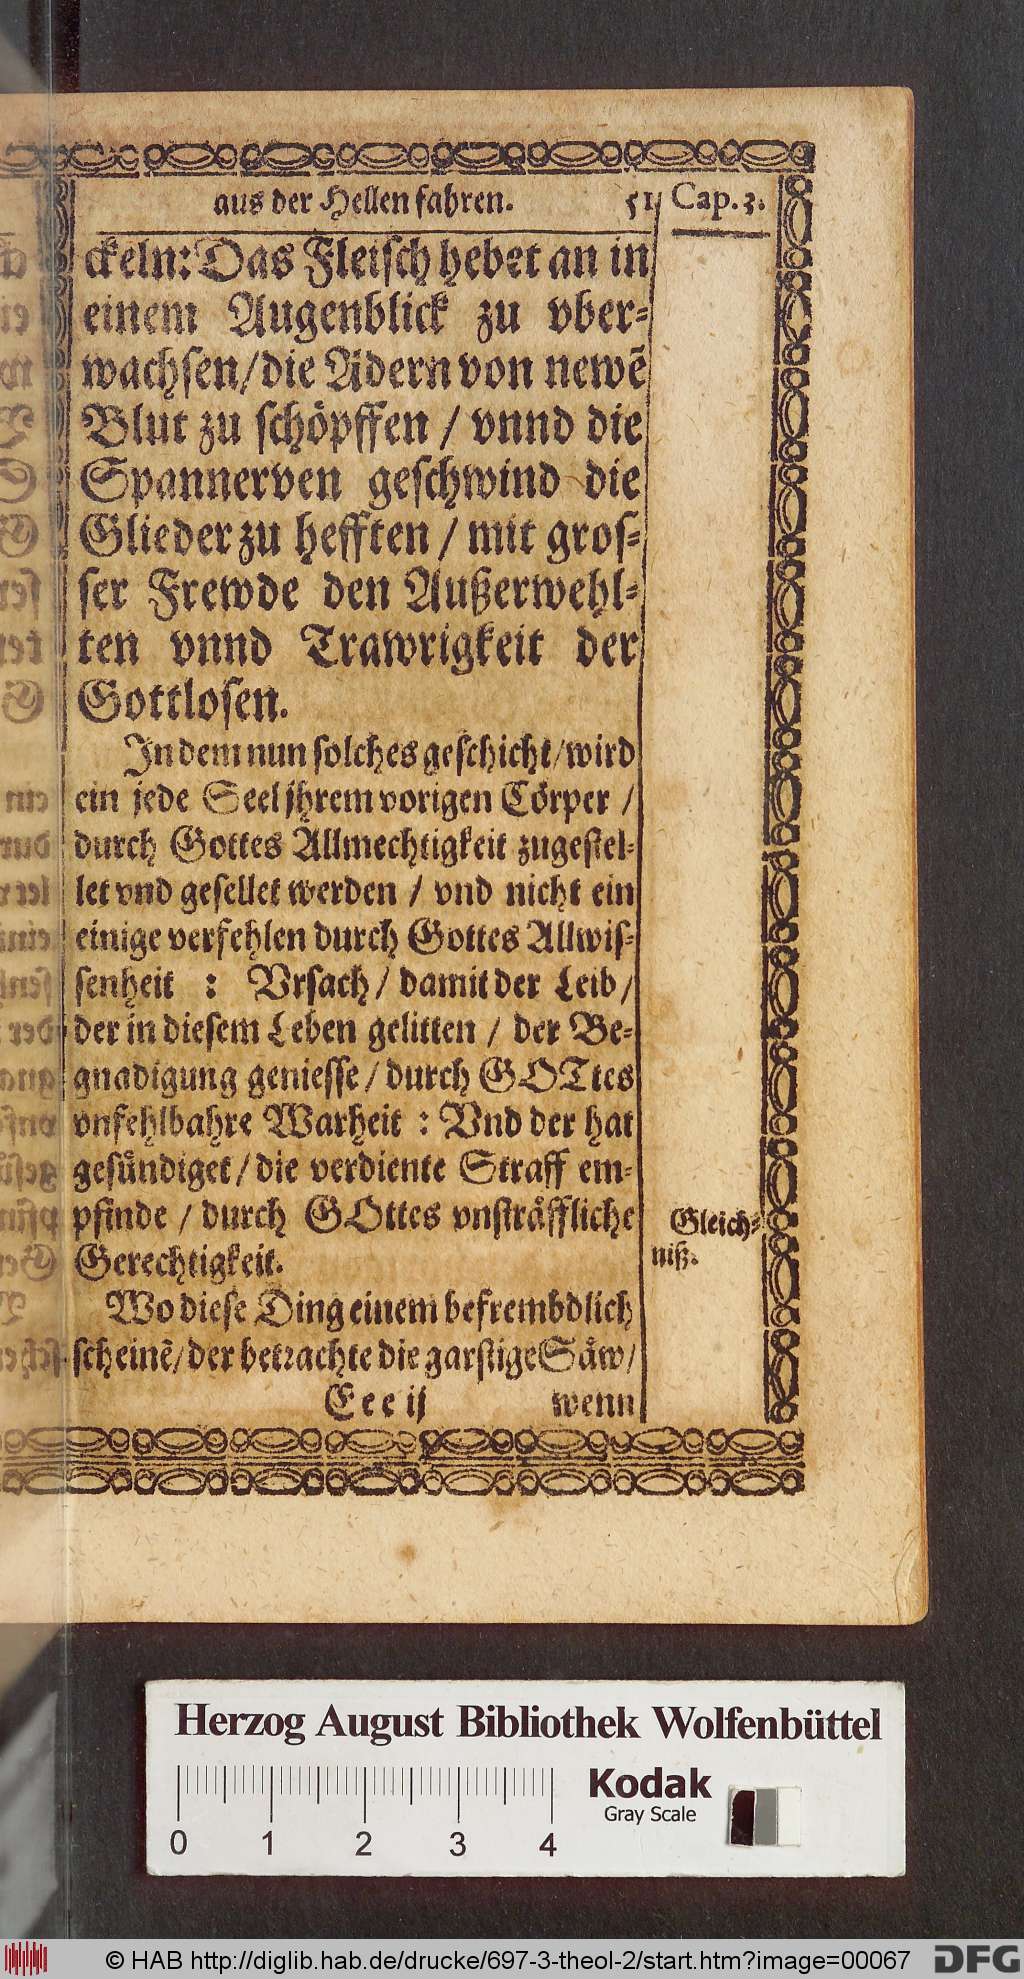 aus der Hellen fahren. 51 Cap. 3.
ckeln: Das Fleisch hebet an in
einem Augenblick zu vber-
wachsen / die Adern von newẽ
Blut zu schöpffen / vnnd die
Spannerven geschwind die
Glieder zu hefften / mit gros-
ser Frewde den Außerwehl-
ten vnnd Trawrigkeit der
Gottlosen.
In dem nun solches geschicht / wird
ein jede Seel jhrem vorigen Cörper /
durch Gottes Allmechtigkeit zugestel-
let vnd gesellet werden / vnd nicht ein
einige verfehlen durch Gottes Allwis-
senheit : Vrsach / damit der Leib /
der in diesem Leben gelitten / der Be-
gnadigung geniesse / durch GOTtes
vnfehlbahre Warheit : Vnd der hat
gesündiget / die verdiente Straff em-
pfinde / durch GOttes vnsträffliche
Gerechtigkeit.
Gleich-
niß.
Wo diese Ding einem befrembdlich
scheinẽ / der betrachte die garstige Säw /
Eee ij wenn
Herzog August Bibliothek Wolfenbüttel
Kodak
Gray Scale
0 1 2 3 4
© HAB http://diglib.hab.de/drucke/697-3-theol-2/start.htm?image=00067 DFG